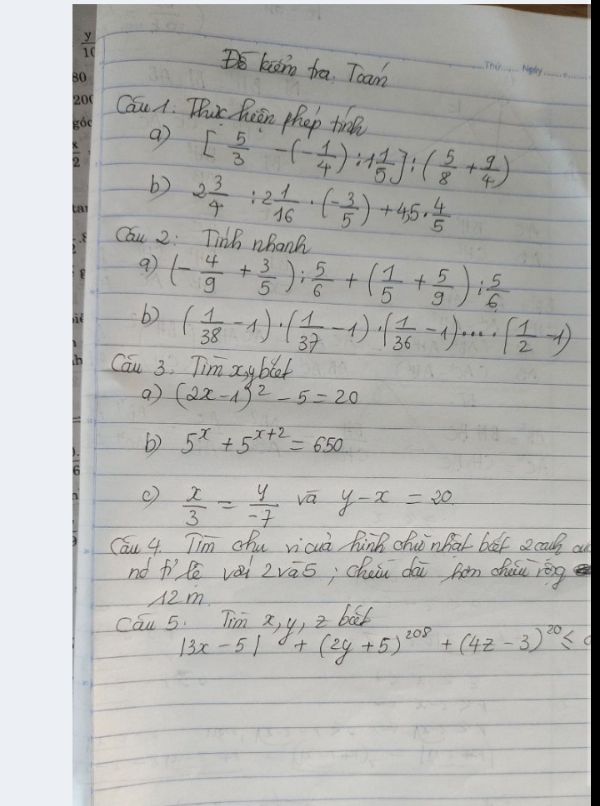 Thứ...... Ngày......
Đề kiểm tra Toán
Câu 1. Thực hiện phép tính
a) [5/3 - (-1/4) : 1 1/5] : (5/8 + 9/4)
b) 2 3/4 : 2 1/16 . (-3/5) + 4,5 . 4/5
Câu 2: Tính nhanh
a) (-4/9 + 3/5) : 5/6 + (1/5 + 5/9) : 5/6
b) (1/38 - 1) . (1/37 - 1) . (1/36 - 1) .... (1/2 - 1)
Câu 3. Tìm x,y biết
a) (2x-1)² - 5 = 20
b) 5^x + 5^(x+2) = 650
c) x/3 = y/-7 và y - x = 20
Câu 4. Tìm chu vi của hình chữ nhật biết 2 cạnh
nó tỉ lệ với 2 và 5 ; chiều dài hơn chiều rộng
12 m.
Câu 5. Tìm x, y, z biết
|3x - 5| + (2y + 5)^208 + (4z - 3)^20 ≤